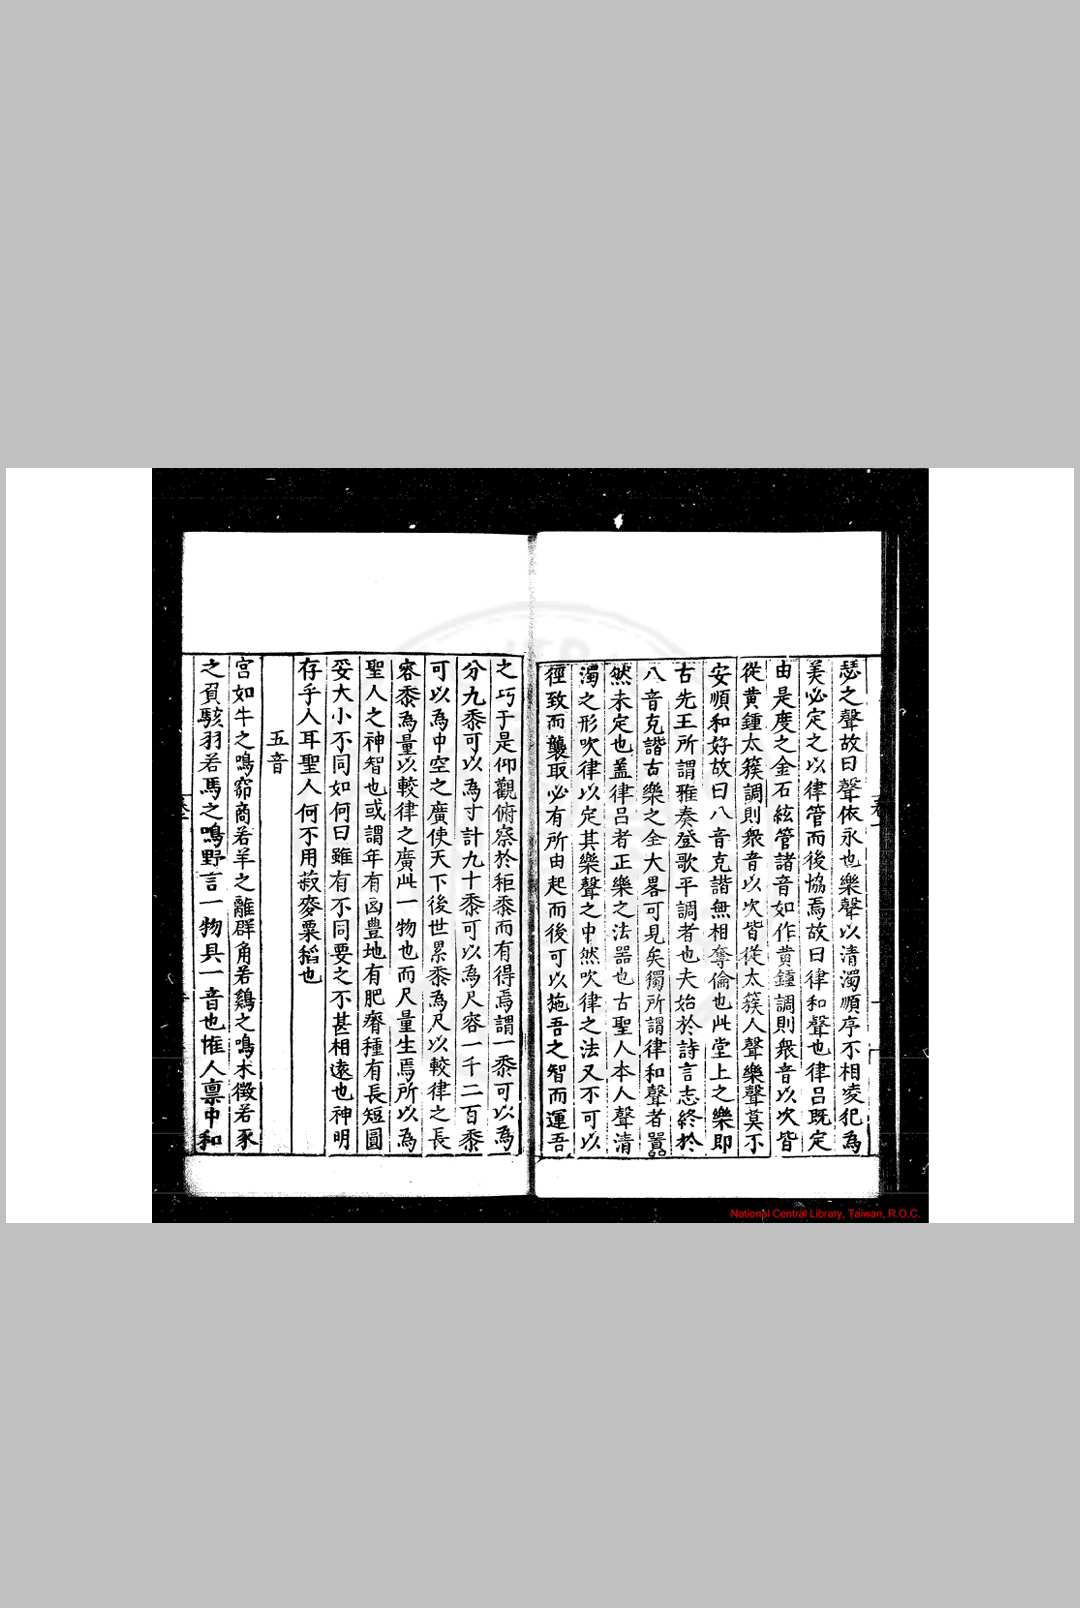 瑟之聲故曰聲依永也樂聲以清濁順序不相凌犯為
美必定之以律管而後協焉故曰律和聲也律呂既定
由是度之金石絃管諸音如作黄鍾調則衆音以次皆
從黄鍾太簇調則衆音以次皆從太簇人聲樂聲莫不
安順和好故曰八音克諧無相奪倫也此堂上之樂即
古先王所謂雅奏登歌平調者也夫始於詩言志終於
八音克諧古樂之全大畧可見矣獨所謂律和聲者嚣
然未定也盖律呂者正樂之法器也古聖人本人聲清
濁之形吹律以定其樂聲之中然吹律之法又不可以
徑致而襲取必有所由起而後可以施吾之智而運吾
之巧于是仰觀俯察於秬黍而有得焉謂一黍可以為
分九黍可以為寸計九十黍可以為尺容一千二百黍
可以為中空之廣使天下後世累黍為尺以較律之長
容黍為量以較律之廣此一物也而尺量生焉所以為
聖人之神智也或謂年有凶豊地有肥瘠種有長短圓
妥大小不同如何曰雖有不同要之不甚相遠也神明
存乎人耳聖人何不用菽麥粟稻也
五音
宮如牛之鳴窌商若羊之離群角若鷄之鳴木徵若豕
之負駭羽若馬之鳴野言一物具一音也惟人禀中和
卷一
National Central Library, Taiwan, R.O.C.